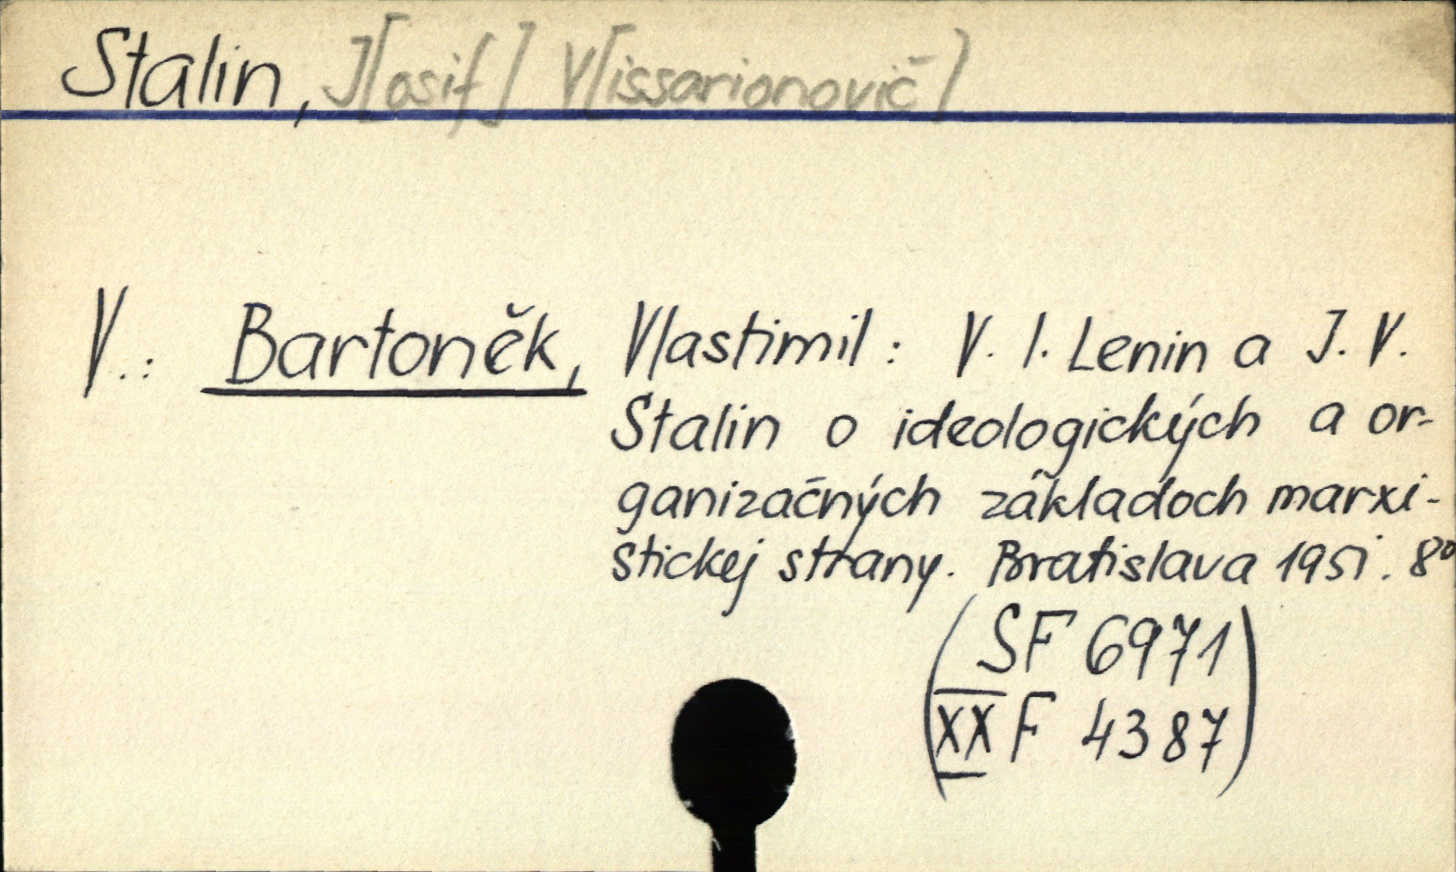 Stalin, J[osif] V[issarionovič]
V.: Bartoněk, Vlastimil: V. I. Lenin a J. V.
Stalin o ideologických a or-
ganizačných základoch marxi-
stickej strany. Bratislava 1951. 8°
(SF 6971
XX F 4387)